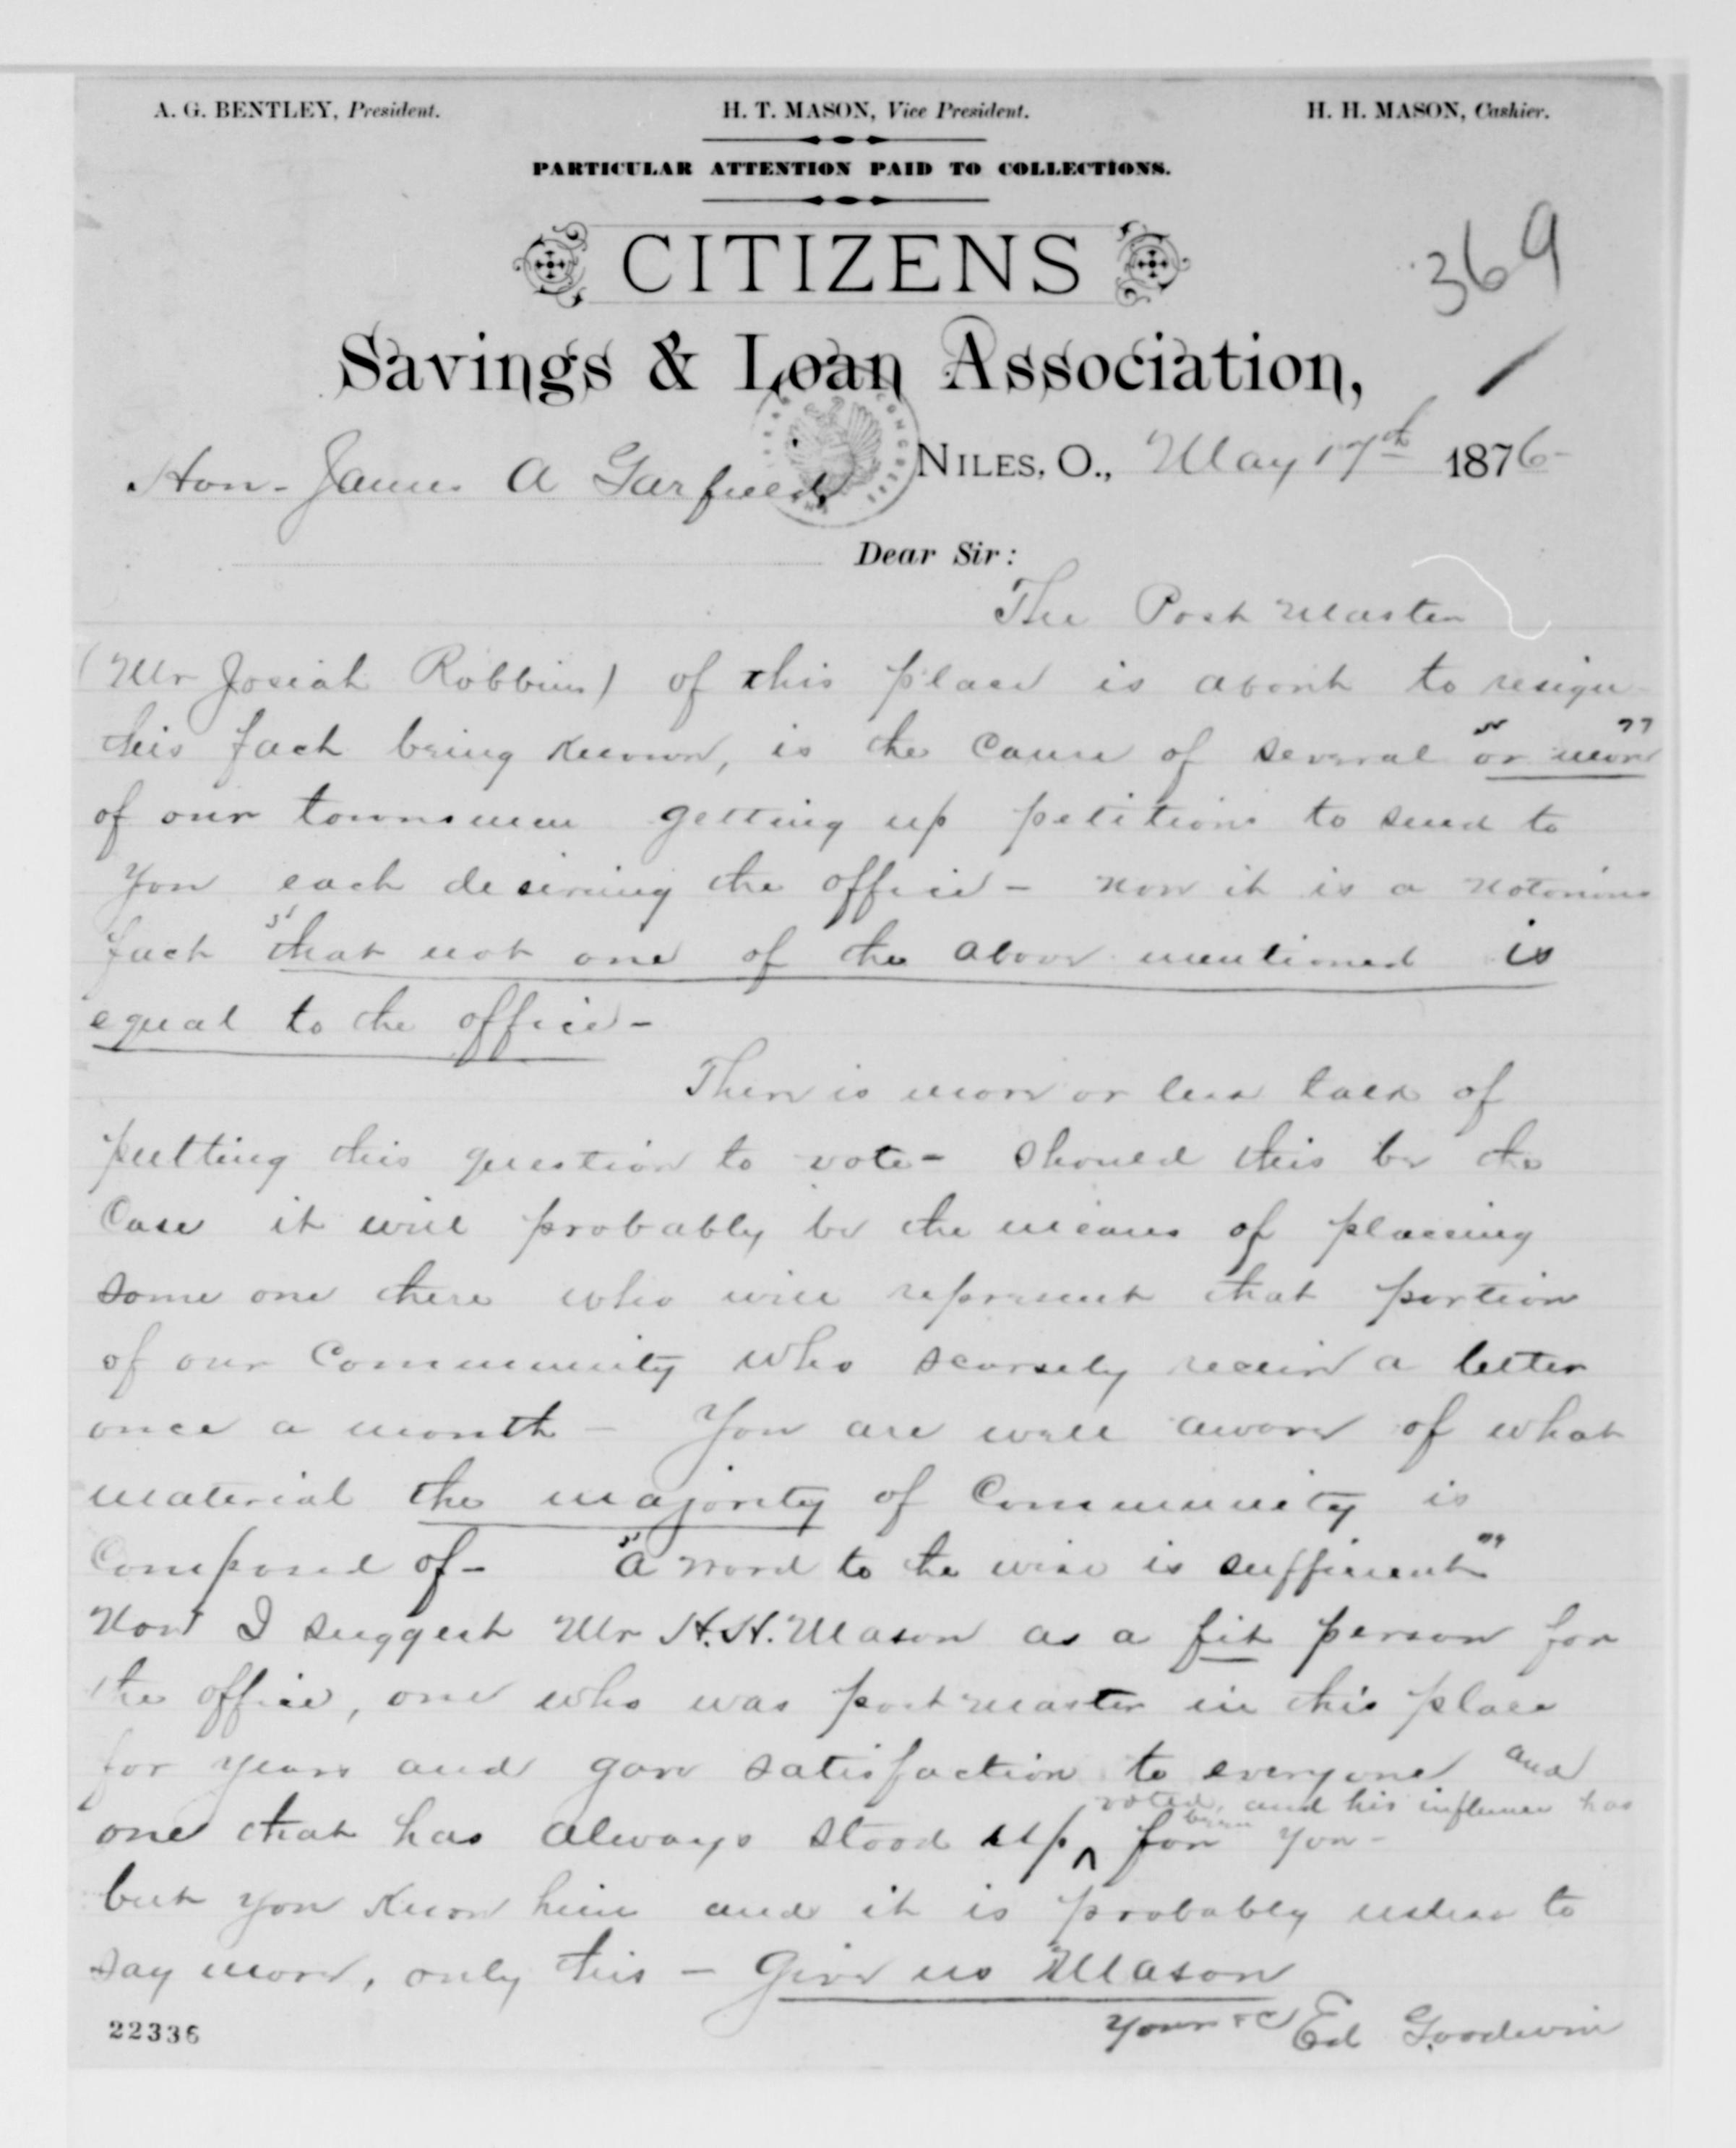 A. G. BENTLEY, President. H. T. MASON, Vice President. H. H. MASON, Cashier.
PARTICULAR ATTENTION PAID TO COLLECTIONS.
CITIZENS
369
Savings & Loan Association,
NILES, O., May 17th 1876-
Hon. James A Garfield
Dear Sir:
The Post Master
(Mr Josiah Robbins) of this place is about to resign
this fact being known, is the cause of several "or more"
of our townsmen getting up petitions to send to
you each desireing the office - now it is a notorious
fact "that not one of the above mentioned is
equal to the office -
There is more or less talk of
putting this question to vote - Should this be the
Case it will probably be the means of placeing
some one there who will represent that portion
of our Community who scarsely receive a letter
once a month - You are well aware of what
material the majority of Community is
Composed of - "a word to the wise is sufficient"
Now I suggest Mr H. H. Mason as a fit person for
the office, one who was postmaster in this place
for years and gave satisfaction to everyone and
voted, and his influence has
one that has always stood up ^ been for you -
but you know him and it is probably useless to
say more, only this - Give us Mason
Yours &c Ed Goodwin
22336